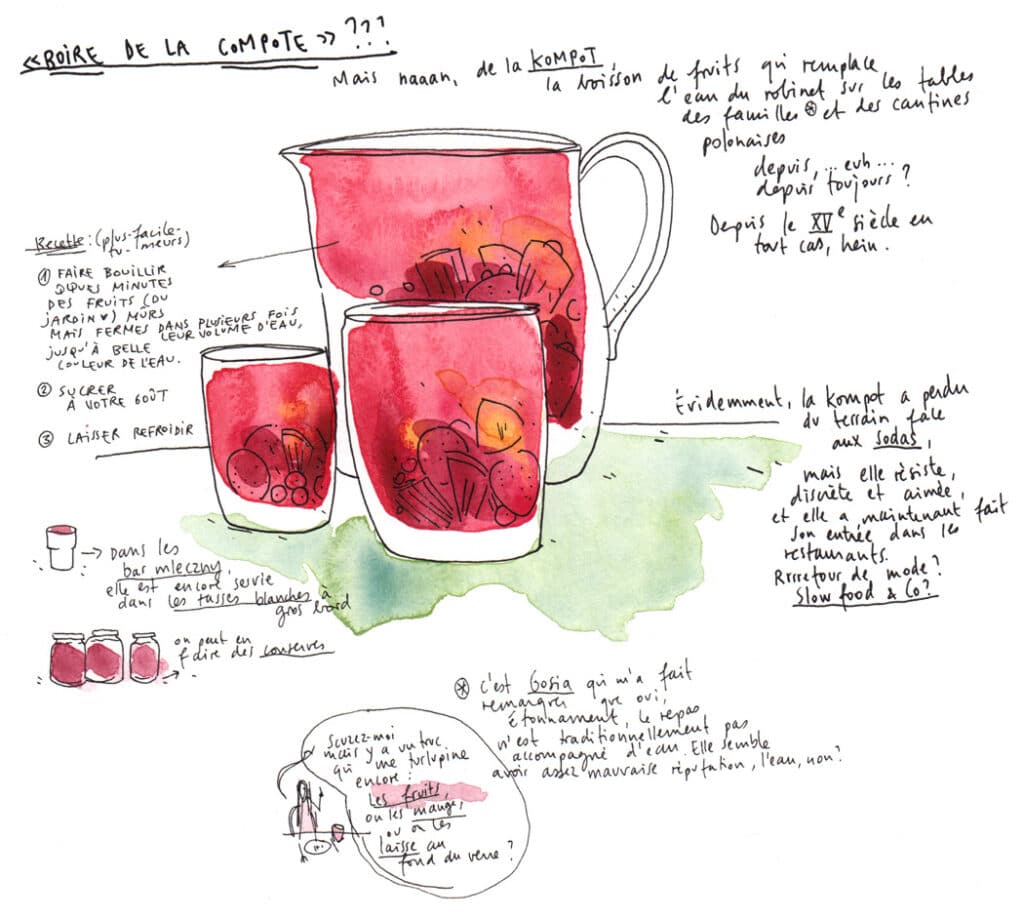 «BOIRE DE LA COMPOTE» ???
Mais naaan, de la KOMPOT,
la boisson de fruits qui remplace
l'eau du robinet sur les tables
des familles* et des cantines
polonaises
depuis, ... euh ...
depuis toujours ?
Depuis le XVe siècle en
tout cas, hein.
Recette : (plus-facile-
tu-meurs)
① FAIRE BOUILLIR
QQUES MINUTES
DES FRUITS (DU
JARDIN ♥) MÛRS
MAIS FERMES DANS PLUSIEURS FOIS
LEUR VOLUME D'EAU,
JUSQU'À BELLE
COULEUR DE L'EAU.
② SUCRER
À VOTRE GOÛT
③ LAISSER REFROIDIR
Évidemment, la kompot a perdu
du terrain face
aux sodas,
mais elle résiste,
discrète et aimée,
et elle a maintenant fait
son entrée dans les
restaurants.
Rrrretour de mode ?
Slow food & Co ?
→ Dans les
bar mleczny,
elle est encore servie
dans les tasses blanches à
gros bord
on peut en
faire des conserves
* C'est Gosia qui m'a fait
remarquer que oui,
étonnamment, le repas
n'est traditionnellement pas
accompagné d'eau. Elle semble
avoir assez mauvaise réputation, l'eau, non ?
Scuzez-moi
mais y a un truc
qui me turlupine
encore :
Les fruits,
on les mange,
ou on les
laisse au
fond du verre ?